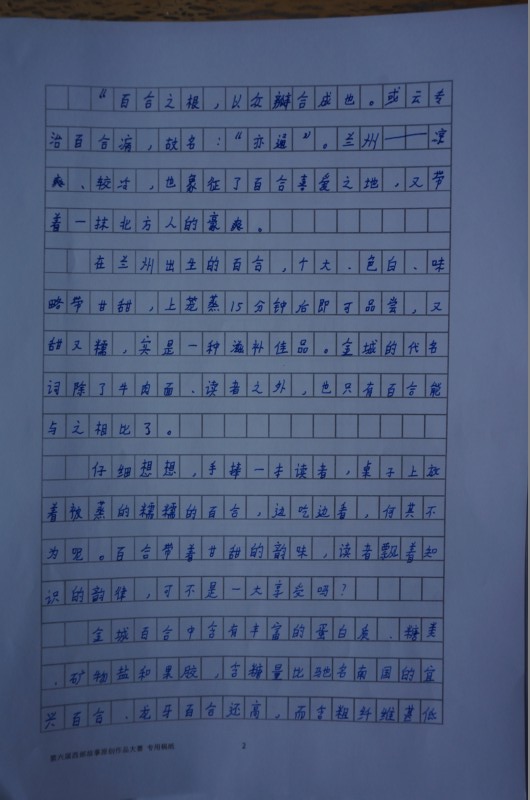 “百合之根，以众瓣合成也。或云专
治百合病，故名：“亦通”。兰州——凉
爽、较寸，也象征了百合喜爱之地，又带
着一抹北方人的豪爽。
在兰州出生的百合，个大、色白、味
略带甘甜，上笼蒸15分钟后即可品尝，又
甜又糯，实是一种滋补佳品。金城的代名
词除了牛肉面、读者之外，也只有百合能
与之相比了。
仔细想想，手捧一本读者，桌子上放
着被蒸的糯糯的百合，边吃边看，何其不
为呢。百合带着甘甜的韵味，读者飘着知
识的韵律，可不是一大享受吗？
金城百合中含有丰富的蛋白质、糖类
、矿物盐和果胶，含糖量比驰名南国的宜
兴百合、龙牙百合还高，而含粗纤维甚低
第六届 故事原创作品大赛 专用稿纸
2